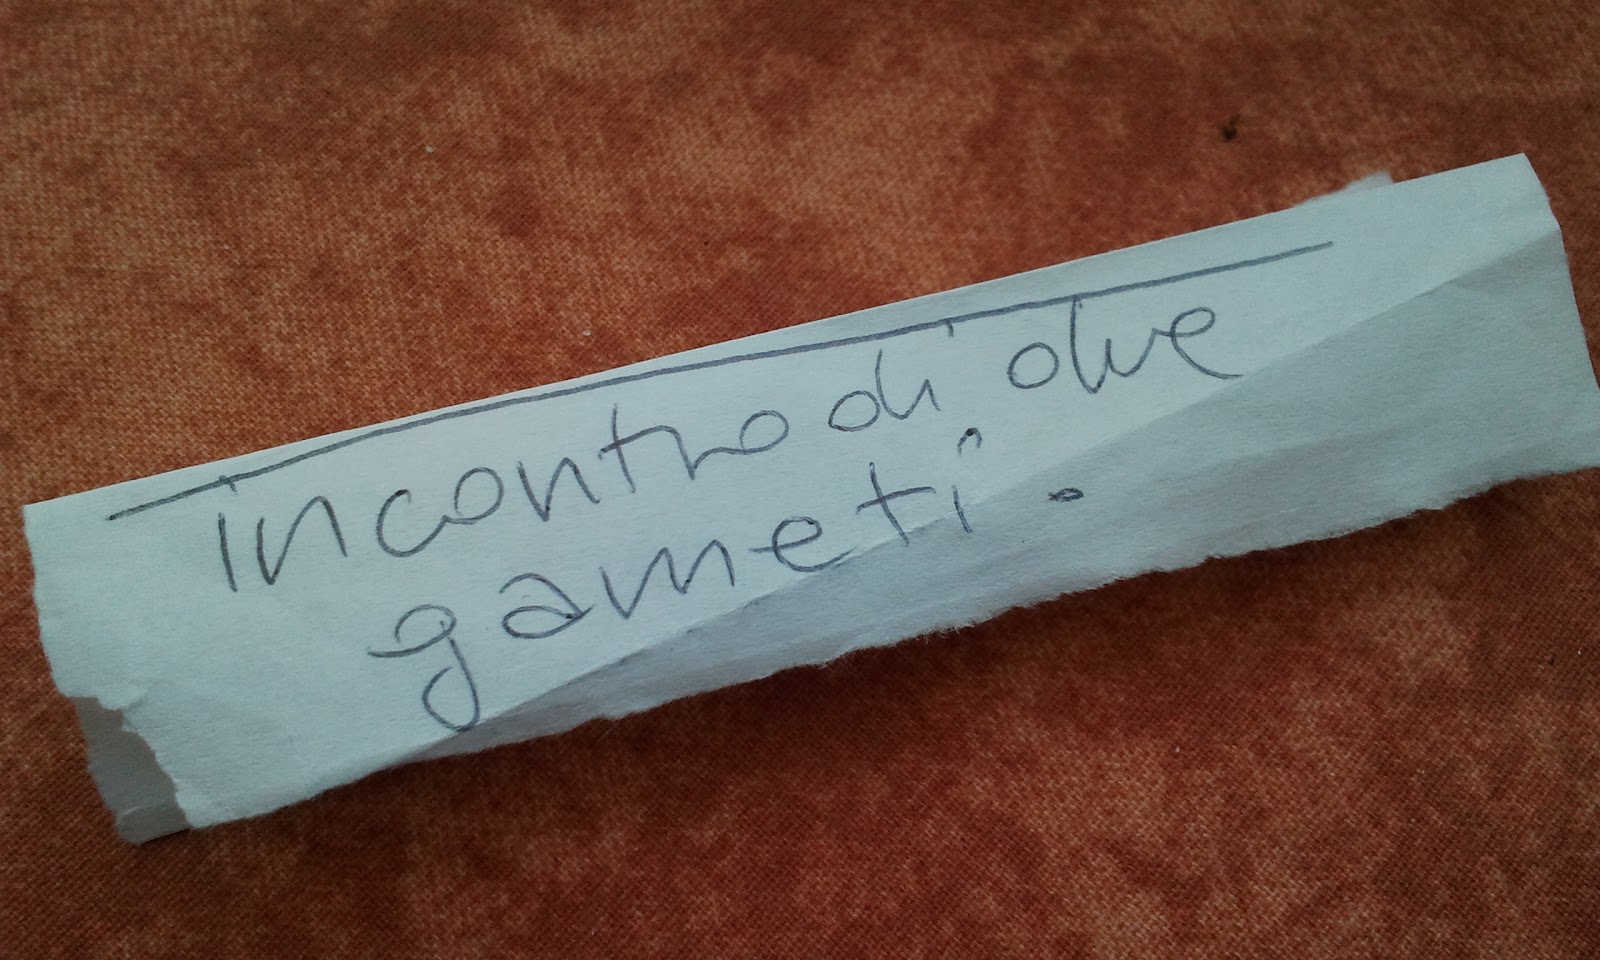 incontro di due
gameti.